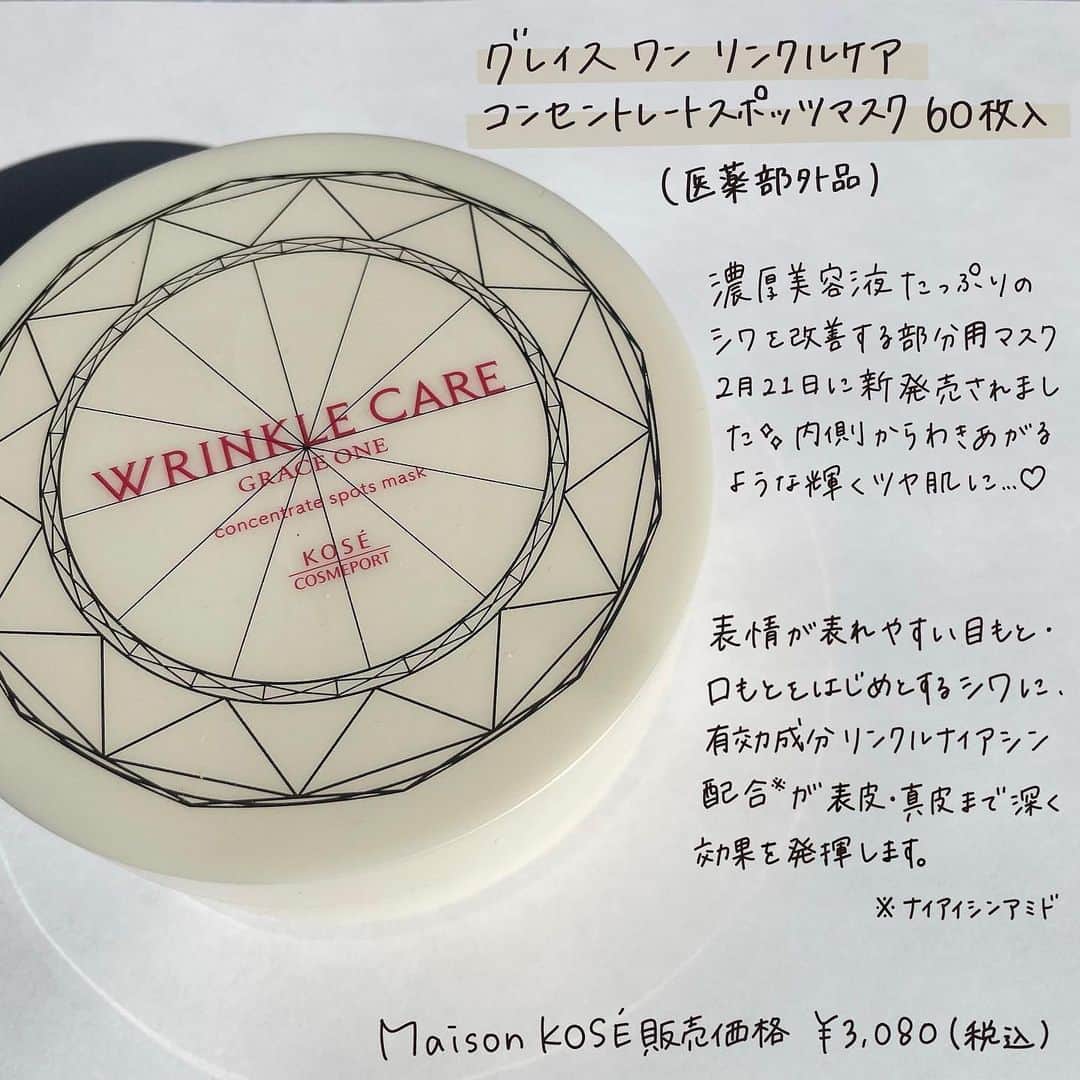 グレイス ワン リンクルケア
コンセントレートスポッツマスク 60枚入
(医薬部外品)
濃厚美容液たっぷりの
シワを改善する部分用マスク
2月21日に新発売されまし
た 内側からわきあがる
ような輝くツヤ肌に…♡
WRINKLE CARE
GRACE ONE
concentrate spots mask
KOSÉ
COSMEPORT
表情が表れやすい目もと・
口もとをはじめとするシワに、
有効成分リンクルナイアシン
配合※が表皮・真皮まで深く
効果を発揮します。
※ナイアイシンアミド
Maison KOSÉ販売価格 ¥3,080(税込)